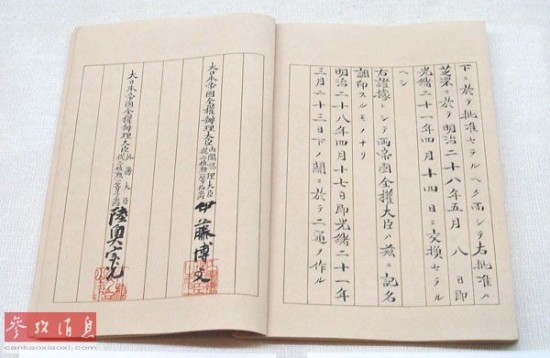 下ニ於テ批准セラルヘク而シテ右批准ハ
芝罘ニ於テ明治二十八年五月八日即
光緒二十一年四月十四日ニ交換セラル
ヘシ
右證據トシテ兩帝國全權大臣ハ茲ニ記名
調印スルモノナリ
明治二十八年四月十七日即光緒二十一年
三月二十三日下ノ關ニ於テ二通ヲ作ル
大日本帝國全權辦理大臣 伊藤博文
大日本帝國全權辦理大臣 陸奧宗光
参考消息
cankaoxiaoxi.com